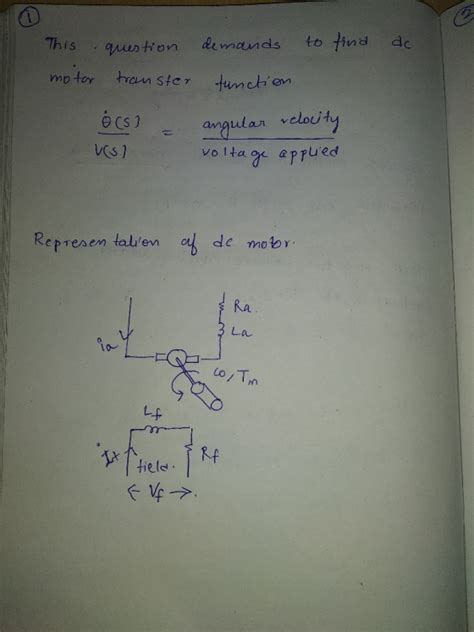 1
2
This question demands to find dc
motor transfer function
θ̇(s) = angular velocity
V(s) voltage applied
Representation of dc motor.
Ra
La
ia
ω, Tm
Lf
Rf
field.
← Vf →